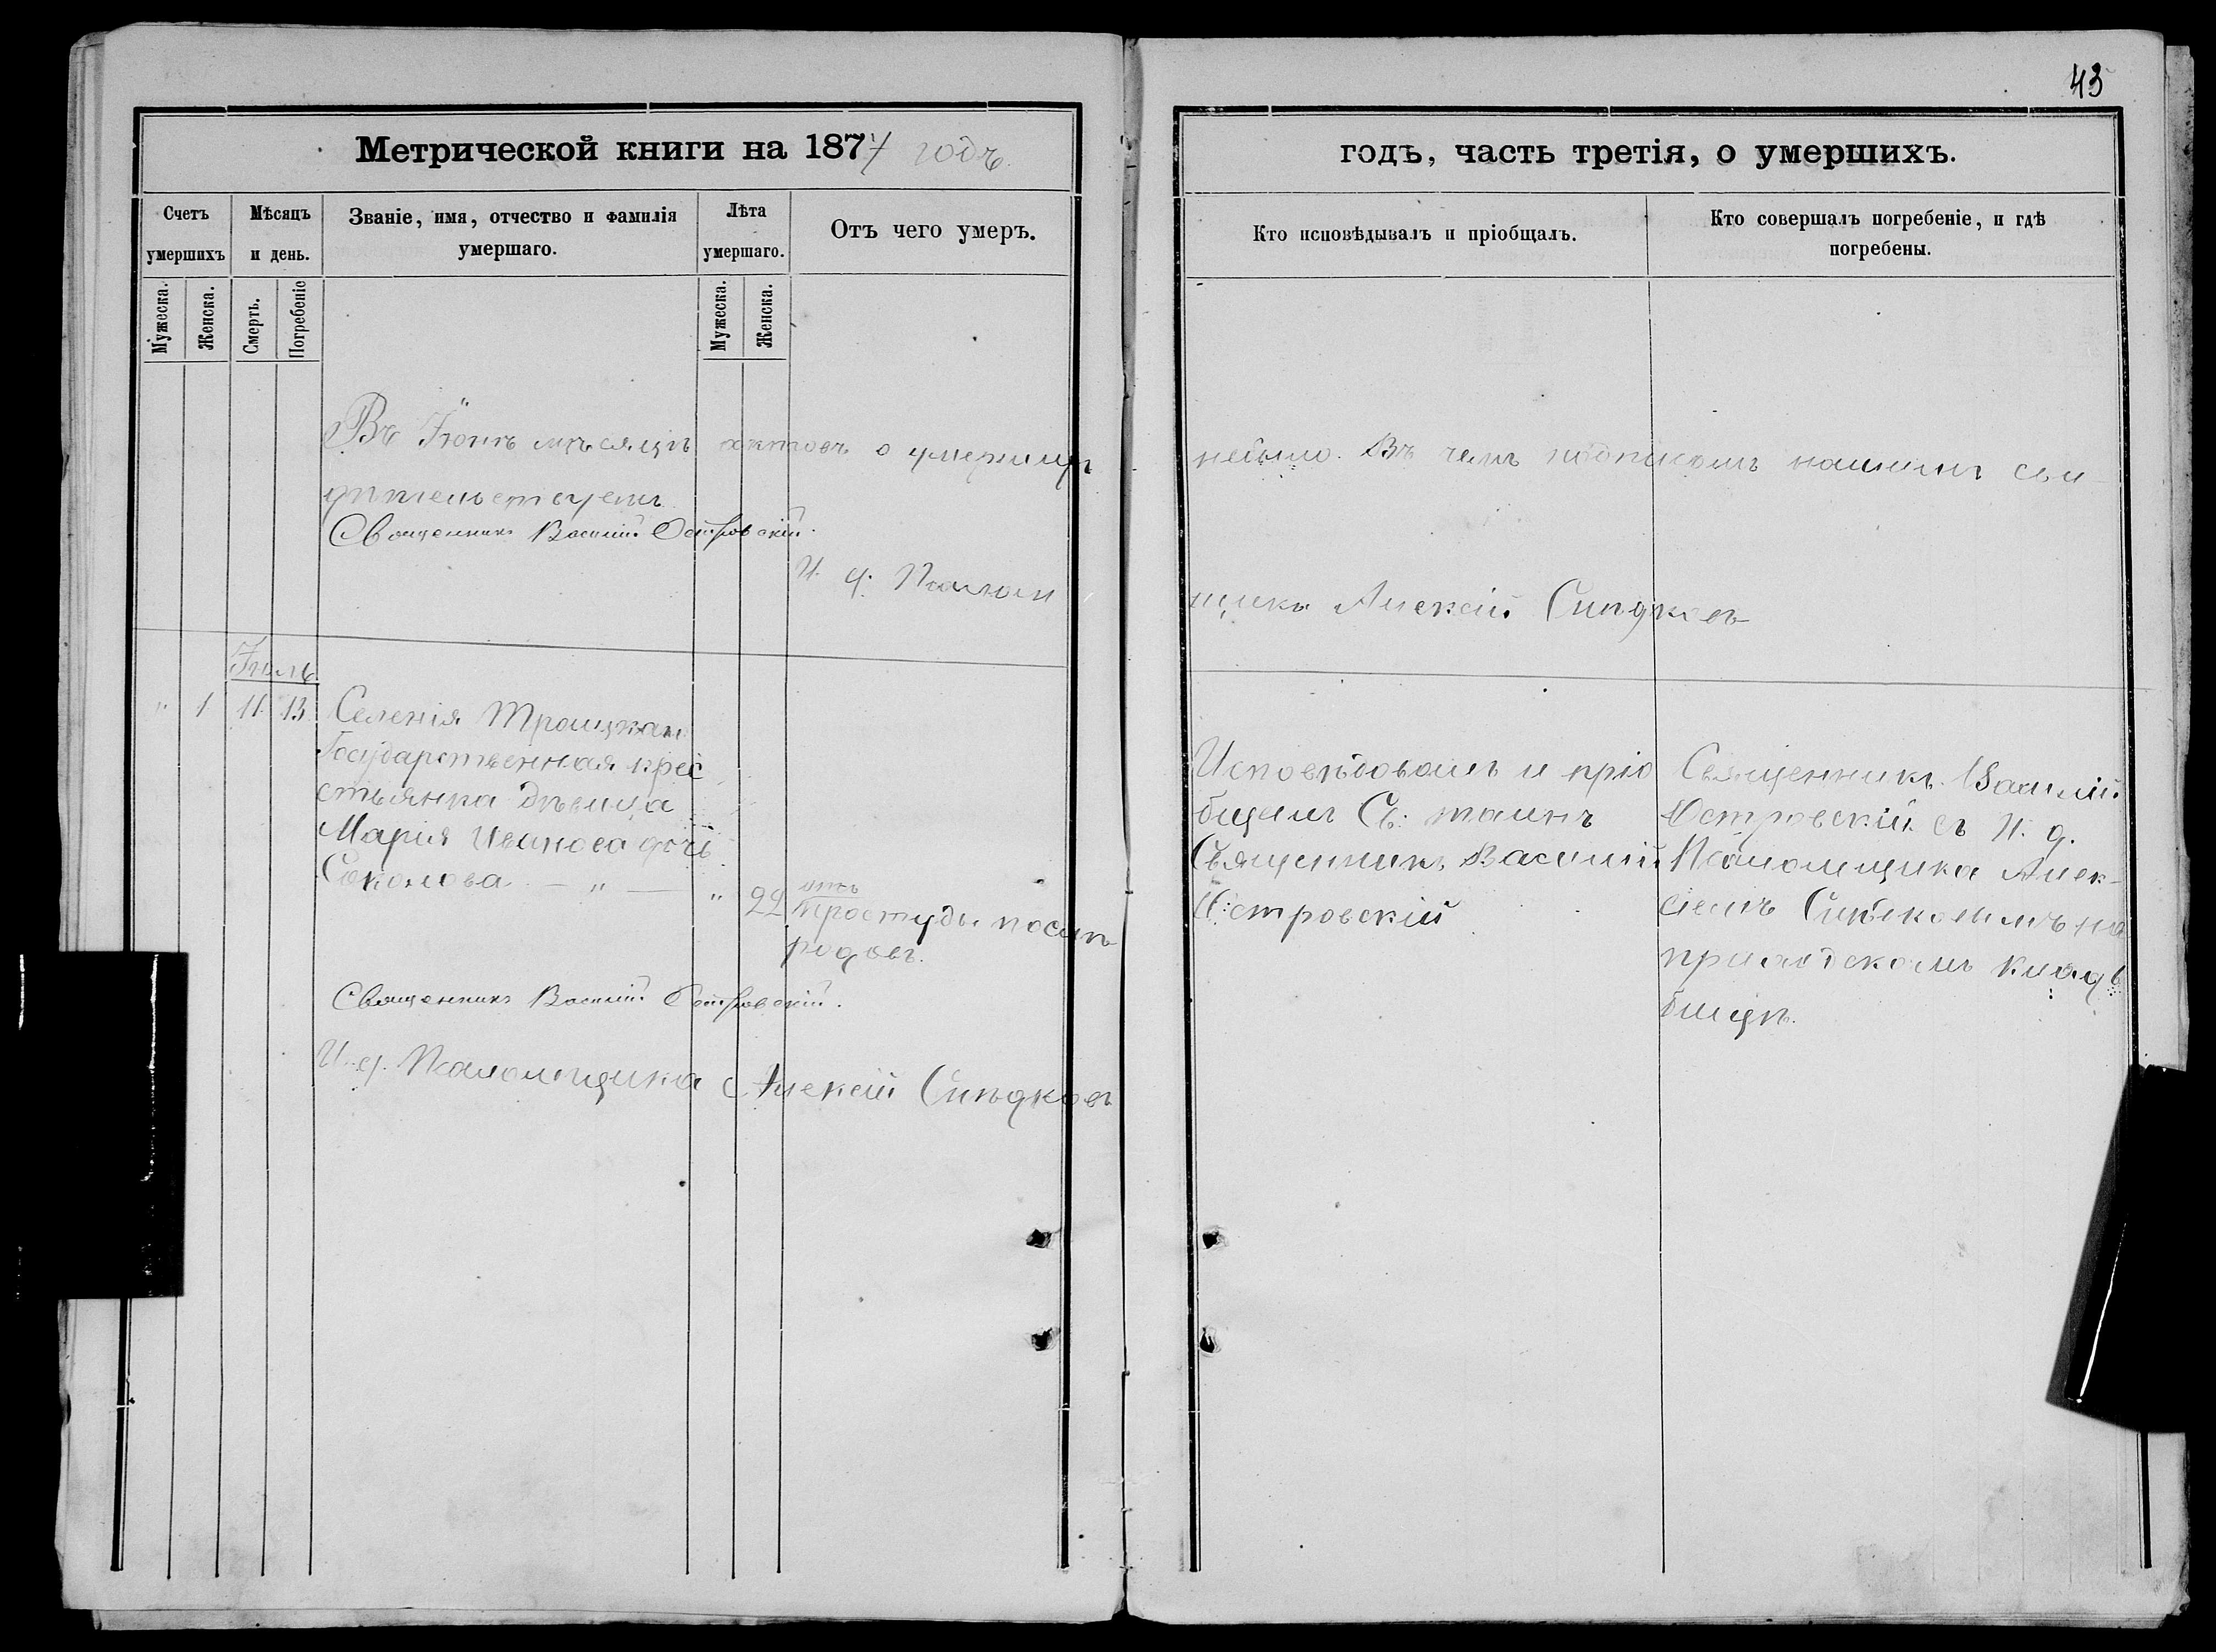 43
Метрической книги на 1877 годъ.
годъ, часть третія, о умершихъ.
Счетъ умершихъ
Мѣсяцъ и день.
Званіе, имя, отчество и фамилія умершаго.
Лѣта умершаго.
Отъ чего умеръ.
Кто исповѣдывалъ и пріобщалъ.
Кто совершалъ погребеніе, и гдѣ погребены.
Мужеска.
Женска.
Смерть.
Погребеніе
Мужеска.
Женска.
Въ Іюнѣ мѣсяцѣ актовъ о умерших небыло. Въ чемъ подписомъ нашимъ сви-
дѣтельствуемъ
Священникъ Василій Островскій.
И. д. Псаломщикъ Алексій
Іюль
" 1 11 13 Селенія Троицкаго
Государственная крес
стьянка дѣвица
Марія Иванова дочь
Соколова — " — " 22
отъ
простуды послѣ
родовъ.
Исповѣдовалъ и пріо
бщилъ Св: таинъ
Священникъ Василій
Островскій
Священникъ Василій
Островскій съ И. д.
Псаломщика Алек-
сіемъ на
приходскомъ клад
бищѣ.
Священникъ Василій Островскій.
И. д. Псаломщика Алексій